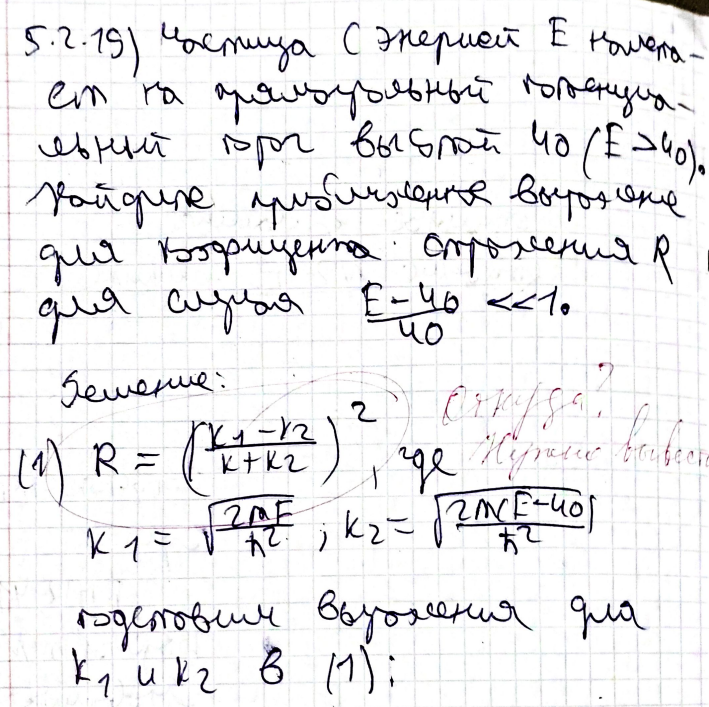 5.2.19) Частица с энергией E налета-
ет на прямоугольный потенциа-
льный порог высотой U0 (E>U0).
Найдите приближенное выражение
для коэффициента отражения R
для случая (E-U0)/U0 <<1.
Решение:
Откуда?
(1) R = ((k1-k2)/(k+k2))^2, где
Нужно вывести
k1 = √(2mE/ħ^2) ; k2 = √(2m(E-U0)/ħ^2)
подставим выражения для
k1 и k2 в (1):